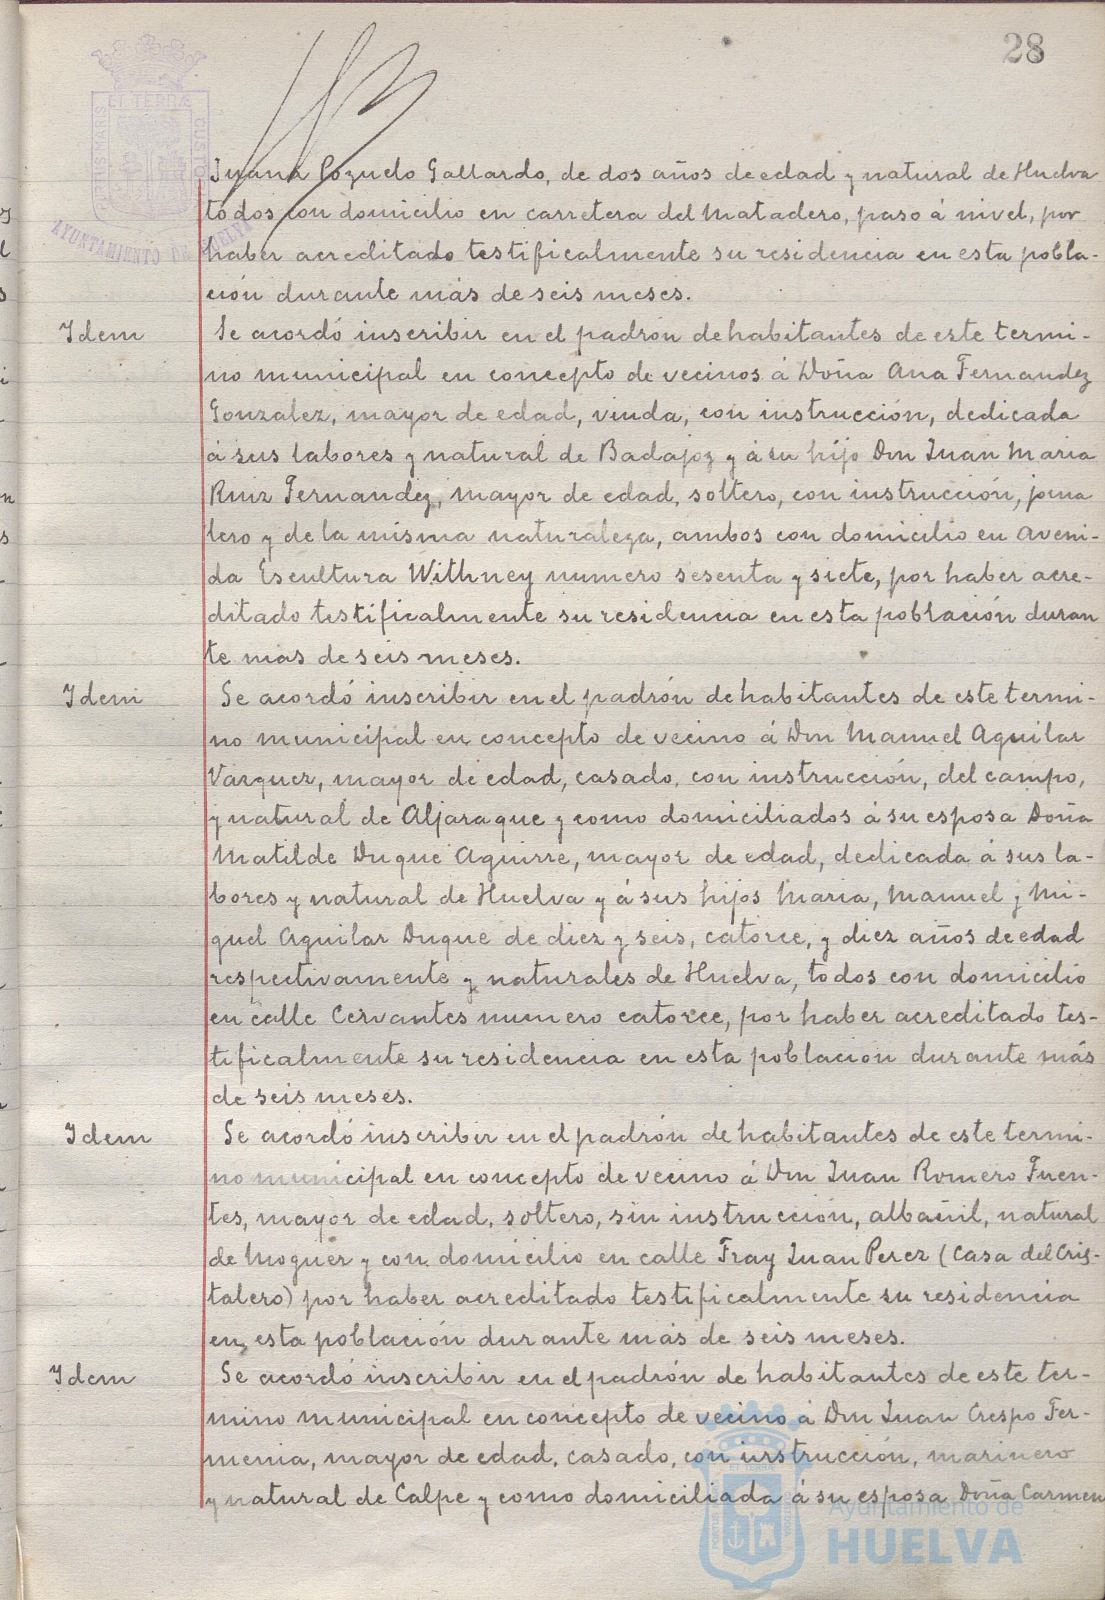 28
ET TERRÆ
PORTUS MARIS
CUSTODIA
AYUNTAMIENTO DE HUELVA
Juana Pozuelo Gallardo, de dos años de edad y natural de Huelva
todos con domicilio en carretera del Matadero, paso á nivel, por
haber acreditado testificalmente su residencia en esta pobla-
ción durante más de seis meses.
Idem
Se acordó inscribir en el padrón de habitantes de este termi-
no municipal en concepto de vecinos á Doña Ana Fernandez
Gonzalez, mayor de edad, viuda, con instrucción, dedicada
á sus labores y natural de Badajoz y á su hijo Don Juan Maria
Ruiz Fernandez, mayor de edad, soltero, con instrucción, jorna
lero y de la misma naturaleza, ambos con domicilio en Aveni-
da Escultura Withney numero sesenta y siete, por haber acre-
ditado testificalmente su residencia en esta población duran
te mas de seis meses.
Idem
Se acordó inscribir en el padrón de habitantes de este termi-
no municipal en concepto de vecino á Don Manuel Aguilar
Vazquez, mayor de edad, casado, con instrucción, del campo,
y natural de Aljaraque y como domiciliados á su esposa Doña
Matilde Duque Aguirre, mayor de edad, dedicada á sus la-
bores y natural de Huelva y á sus hijos Maria, Manuel y Mi-
guel Aguilar Duque de diez y seis, catorce, y diez años de edad
respectivamente y naturales de Huelva, todos con domicilio
en calle Cervantes numero catorce, por haber acreditado tes-
tificalmente su residencia en esta poblacion durante más
de seis meses.
Idem
Se acordó inscribir en el padrón de habitantes de este termi-
no municipal en concepto de vecino á Don Juan Romero Fuen-
tes, mayor de edad, soltero, sin instrucción, albañil, natural
de Moguer y con domicilio en calle Fray Juan Perez (Casa del Cris-
talero) por haber acreditado testificalmente su residencia
en esta población durante más de seis meses.
Idem
Se acordó inscribir en el padrón de habitantes de este ter-
mino municipal en concepto de vecino á Don Juan Crespo Fer-
menia, mayor de edad, casado, con instrucción, marinero
y natural de Calpe y como domiciliada á su esposa Doña Carmen
Ayuntamiento de
HUELVA